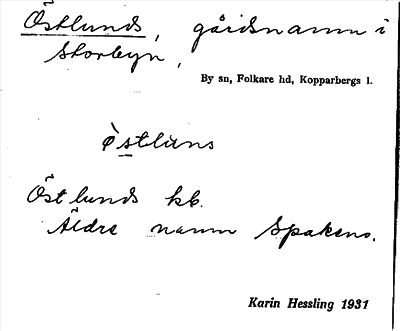 Östlunds, gårdsnamn i
Storbyn,
By sn, Folkare hd, Kopparbergs l.
östlùns
Östlunds kb.
Äldre namn Spakens.
Karin Hessling 1931